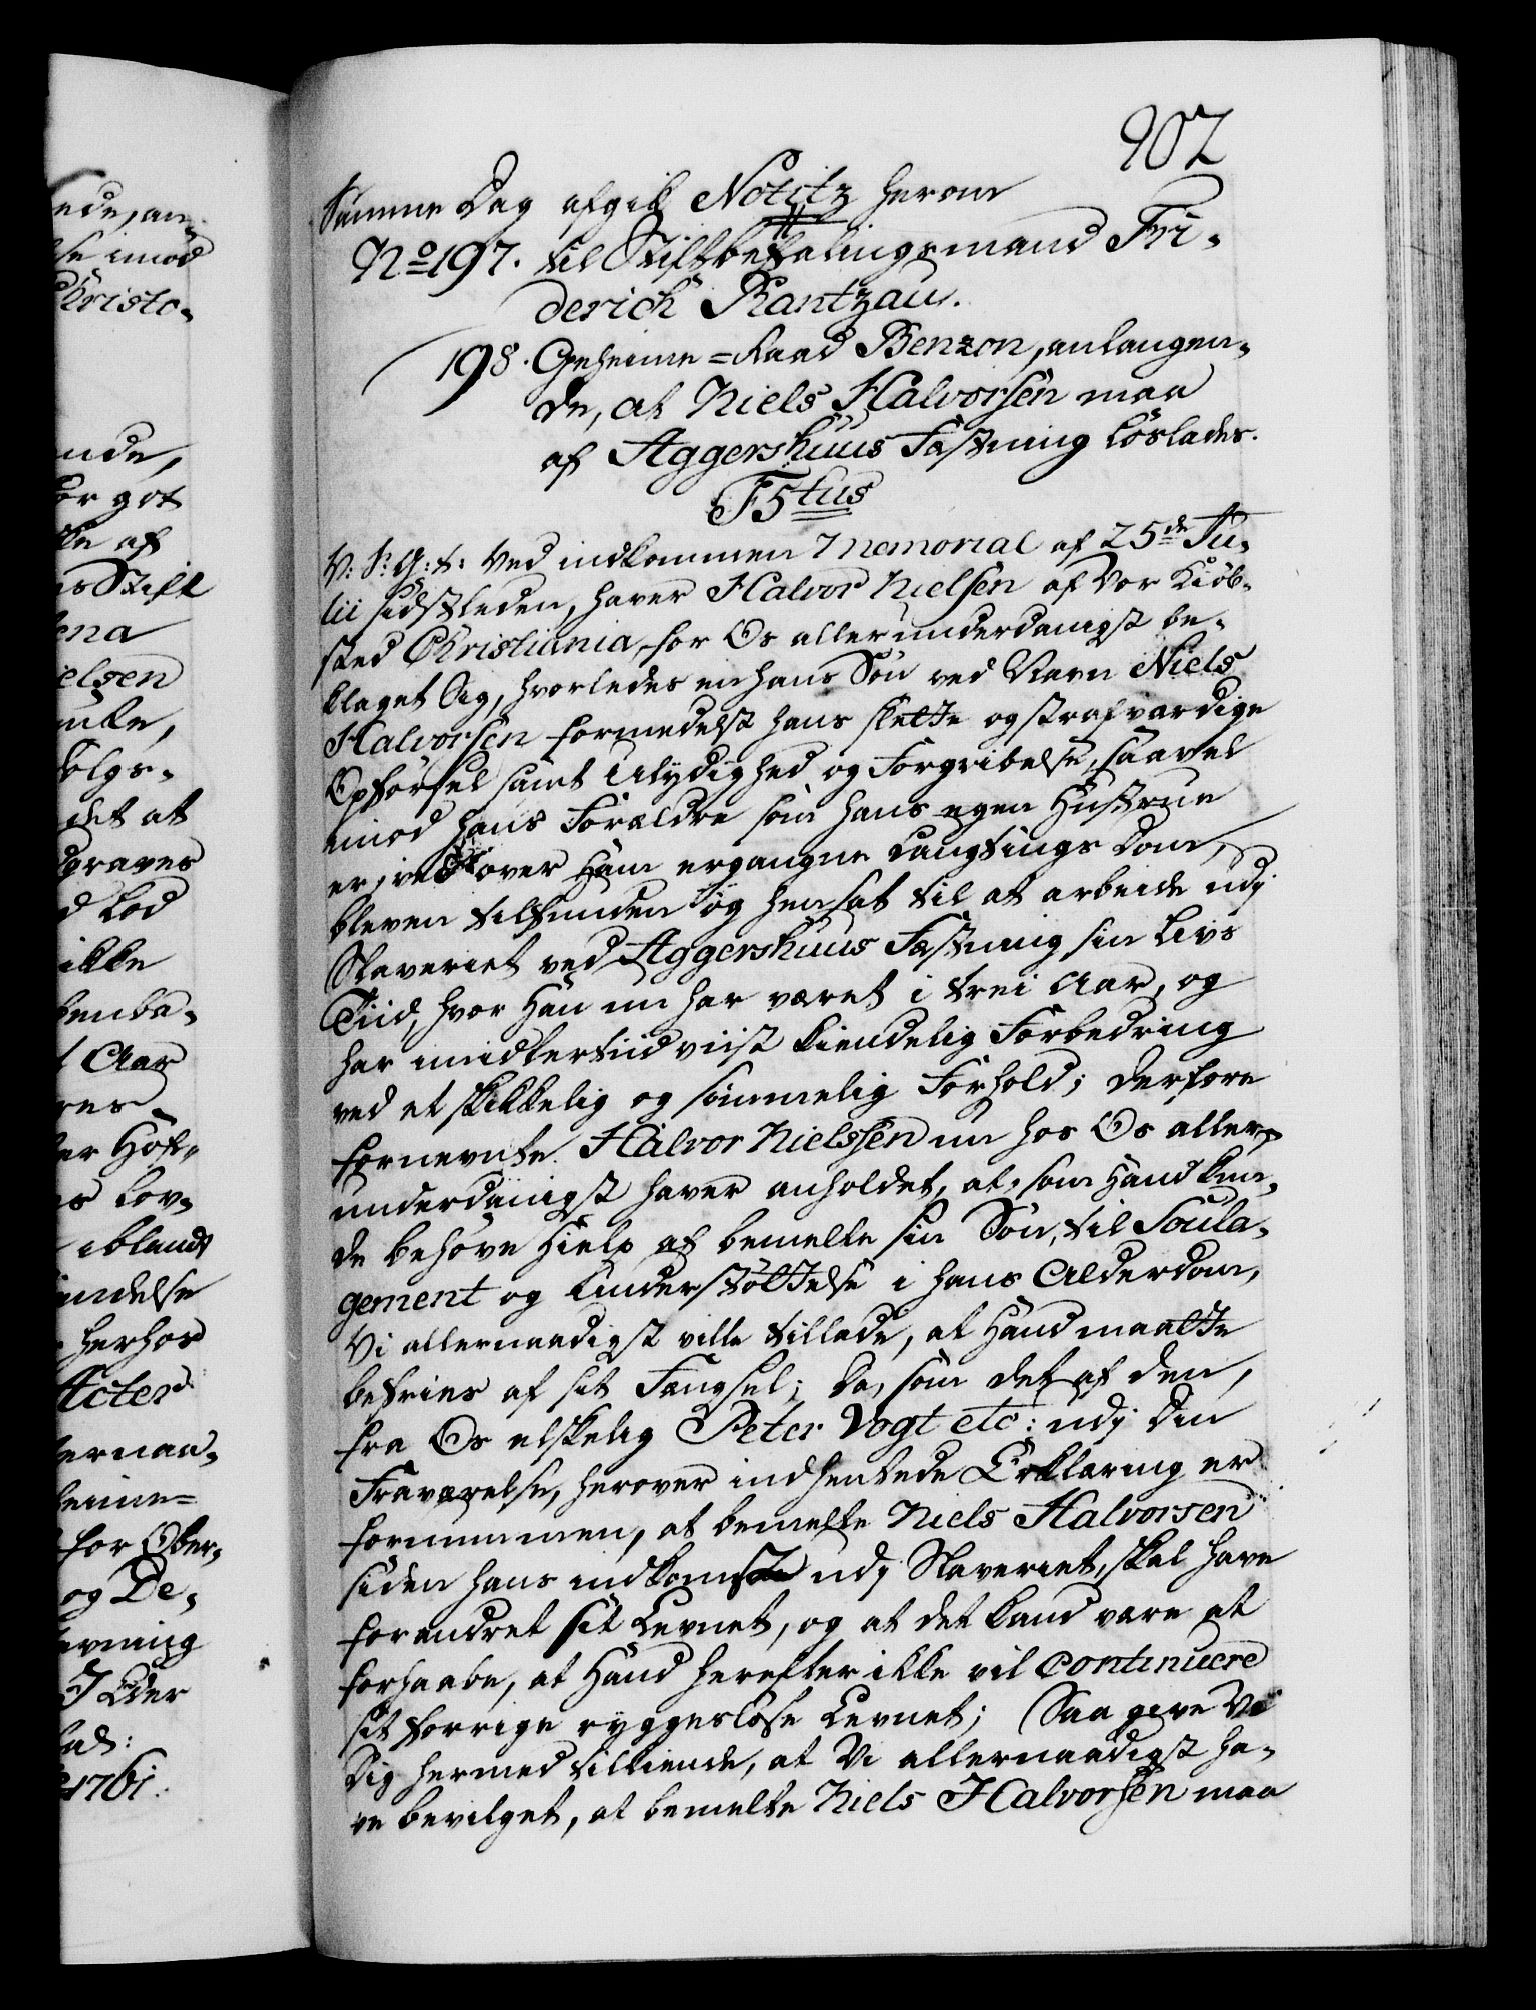 902
Samme Dag afgik Notitz herom
No 197. til Stiftbefalingsmand Fri-
derich Rantzau.
198. Geheime=Raad Benzon, anlangen-
de, at Niels Halvorsen maa
af Aggershuus Fæstning löslades.
F5tus
V: S: G: t: Ved indkommen Memorial af 25de Ju-
lii sidstleden, haver Halvor Nielsen af Vor Kiöb-
sted Christiania, for Os allerunderdanigst be-
klaget Sig, hvorledes en hans Sön ved Navn Niels
Halvorsen formedelst hans slette og strafværdige
Opförsel samt Ulydighed og Forgribelse, saavel
imod hans Forældre som hans egen Hustrue
er, ved over Ham ergangne Laugtings Dom,
bleven tilfunden og hensat til at arbeide udj
Slaveriet ved Aggershuus Fæstning sin Livs
Tiid, hvor Han nu har været i trei Aar, og
har imidlertiid viist kiendelig Forbedring
ved et skikkelig og sömmelig Forhold; derfore
fornevnte Halvor Nielssen nu hos Os aller-
underdanigst haver anholdet, at, som Hand kun-
de behöve Hielp af bemelte sin Sön, til Soula-
gement og Understöttelse i hans Alderdom,
Vi allernaadigst ville tillade, at Hand maatte
befries af sit Fængsel; Da, som det af den,
fra Os elskelig Peter Vogt etc: udj Din
Fraværelse, herover indhentede Erklæring er
fornummen, at bemelte Niels Halvorsen
siden hans indkomst udj Slaveriet, skal have
forandret sit Levnet, og at det kand være at
forhaabe, at Hand herefter ikke vil continuere
sit forrige ryggeslöse Levnet; Saa give Vi
Dig hermed tilkiende, at Vi allernaadigst ha-
ve bevilget, at bemelte Niels Halvorsen maa